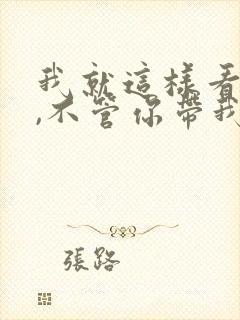 我就這樣看
,不管你帶我
張路